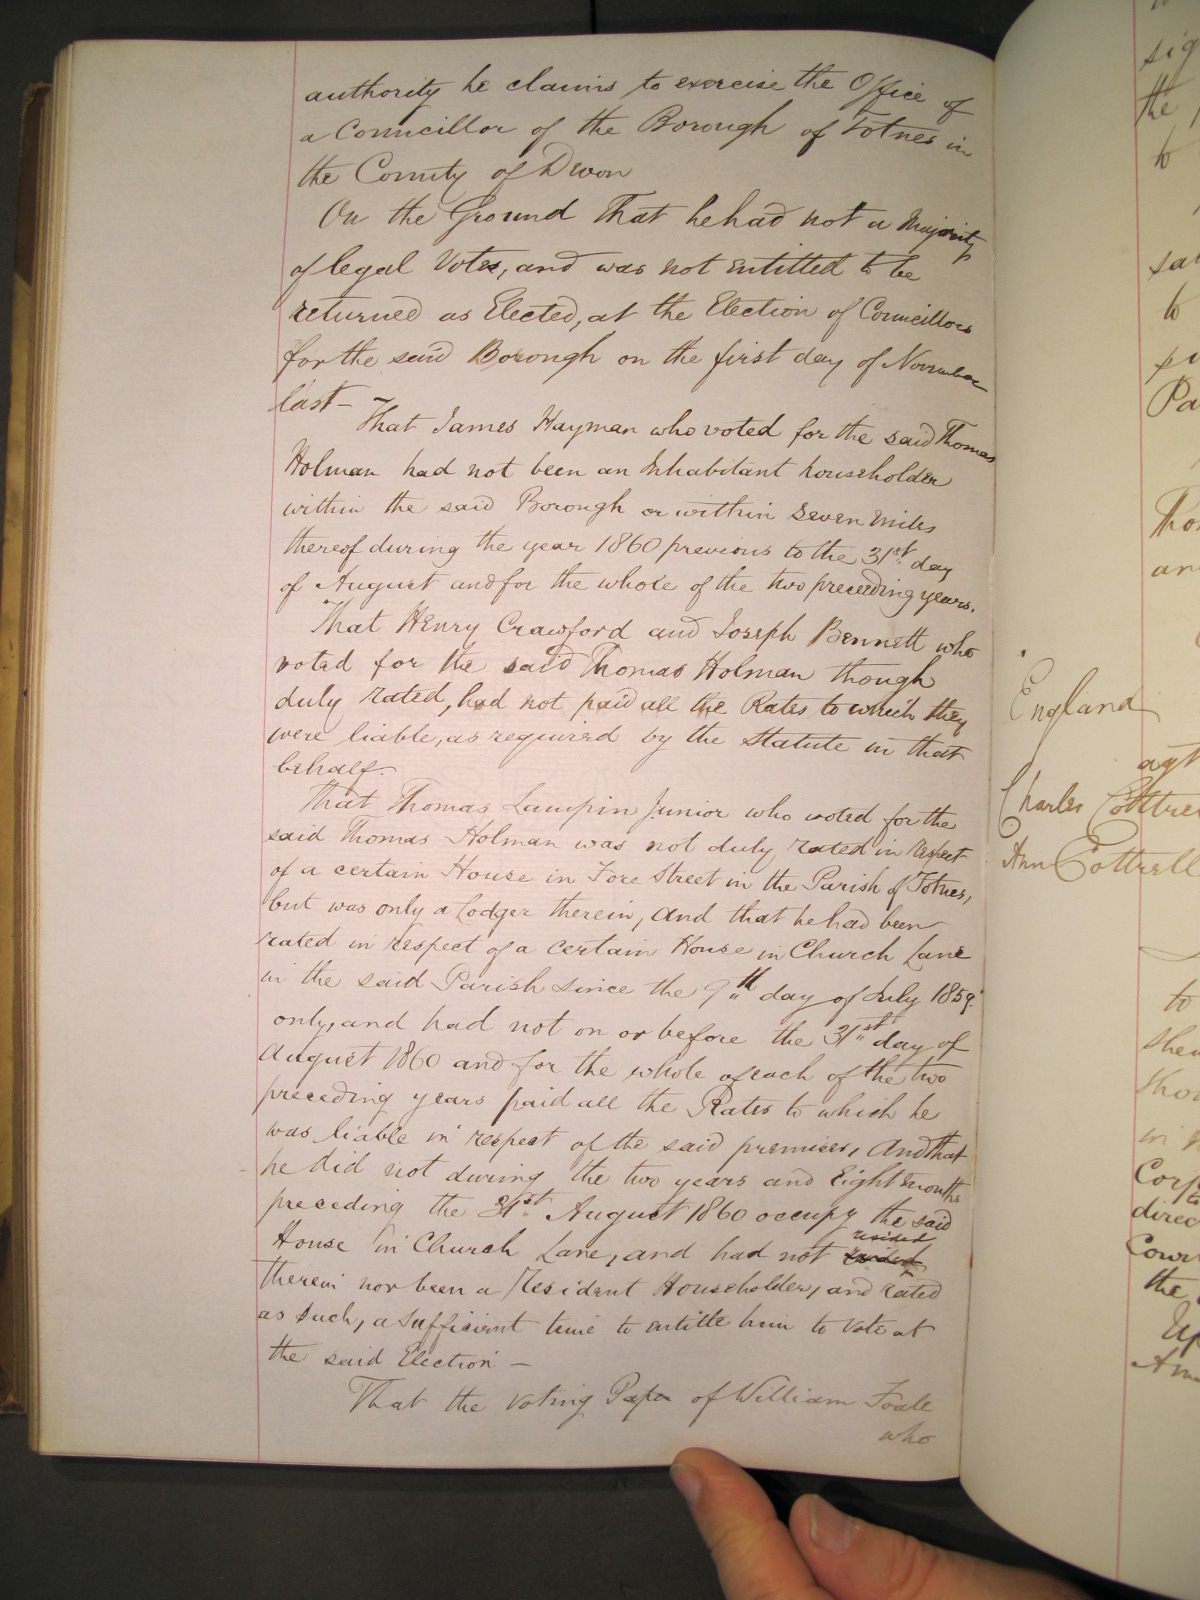 authority he claims to exercise the Office of
a Councillor of the Borough of Totnes in
the County of Devon
On the Ground That he had not a Majority
of legal Votes, and was not entitled to be
returned as Elected, at the Election of Councillors
for the said Borough on the first day of November
last—
That James Hayman who voted for the said Thomas
Holman had not been an Inhabitant householder
within the said Borough or within Seven Miles
thereof during the year 1860 previous to the 31st day
of August and for the whole of the two preceeding years.
That Henry Crawford and Joseph Bennett who
voted for the said Thomas Holman though
duly rated, had not paid all the Rates to which they
were liable, as required by the Statute in that
behalf.
That Thomas Lampin Junior who voted for the
said Thomas Holman was not duly rated in respect
of a certain House in Fore Street in the Parish of Totnes,
but was only a Lodger therein, and that he had been
rated in respect of a certain House in Church Lane
in the said Parish since the 9th day of July 1859
only, and had not on or before the 31st day of
August 1860 and for the whole of each of the two
preceding years paid all the Rates to which he
was liable in respect of the said premises, And that
he did not during the two years and Eight months
preceding the 31st August 1860 occupy the said
House in Church Lane, and had not resided
therein nor been a Resident Householder, and rated
as such, a sufficient time to entitle him to vote at
the said Election —
That the Voting Paper of William Foale
who
sig
the
to
to
Pa
Tho
an
England
agt
Charles Cottrel
Ann Cottrell
to
in
direc
Cour
the
Up